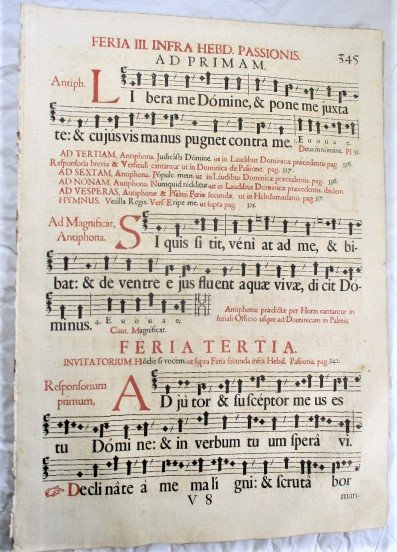 FERIA III. INFRA HEBD. PASSIONIS. 345
AD PRIMAM.
Antiph. LIbera me Dómine, & pone me juxta
te: & cujusvis manus pugnet contra me. E u o u a e.
Deus in nomine. Pl. 53.
AD TERTIAM, Antophona. Judicásti Dómine. ut in Laudibus Dominicæ præcedentis pag. 336.
Responsoria brevia & Versiculi cantantur ut in Dominica de Passione. pag. 327.
AD SEXTAM, Antophona. Pópule meus. ut in Laudibus Dominicæ præcedentis, pag. 336.
AD NONAM, Antophona. Numquid rédditur. ut in Laudibus Dominicæ præcedentis, ibidem
AD VESPERAS, Antophonæ & Psalmi Feriæ secundæ, ut in Hebdomadario. pag. 97.
HYMNUS. Vexilla Regis. Vers. Eripe me. ut supra pag. 325.
Ad Magnificat, Antiphona. SI quis si tit, véni at ad me, & bi-
bat: & de ventre e jus fluent aquæ vivæ, di cit Dó-
minus. 4. E u o u a e.
Cant. Magnificat.
Antiphonæ prædictæ per Horas cantantur in
feriali Officio usque ad Dominicam in Palmis.
FERIA TERTIA.
INVITATORIUM Hódie si vocem. ut supra Feria secunda infra Hebd. Passionis. pag. 342.
Responsorium primum. AD jú tor & su scéptor me us es
tu Dómi ne: & in verbum tu um sperá vi.
Declináte à me malí gni: & scrutá bor
V 8 man-